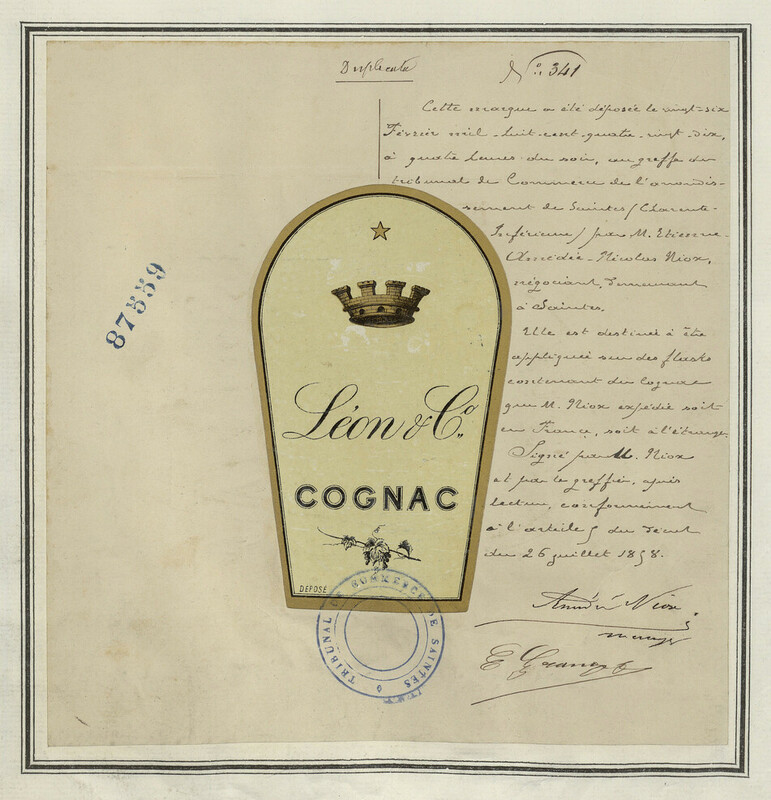 Duplicata
N° 341
Cette marque a été déposée le vingt-six
Février mil-huit-cent-quatre-vingt-dix,
à quatre heures du soir, au greffe du
tribunal de Commerce de l'arrondis-
sement de Saintes (Charente-
Inférieure) par M. Etienne-
Amédée-Nicolas Niox,
négociant, demeurant
à Saintes.
Elle est destinée à être
appliquée sur des flasks
contenant du Cognac
que M. Niox expédie soit
en France, soit à l'étranger.
Signé par M. Niox
et par le greffier, après
lecture, conformément
à l'article 5 du décret
du 26 juillet 1858.
Amédée Niox
87559
Léon & Co.
COGNAC
DÉPOSÉ
TRIBUNAL DE COMMERCE DE SAINTES